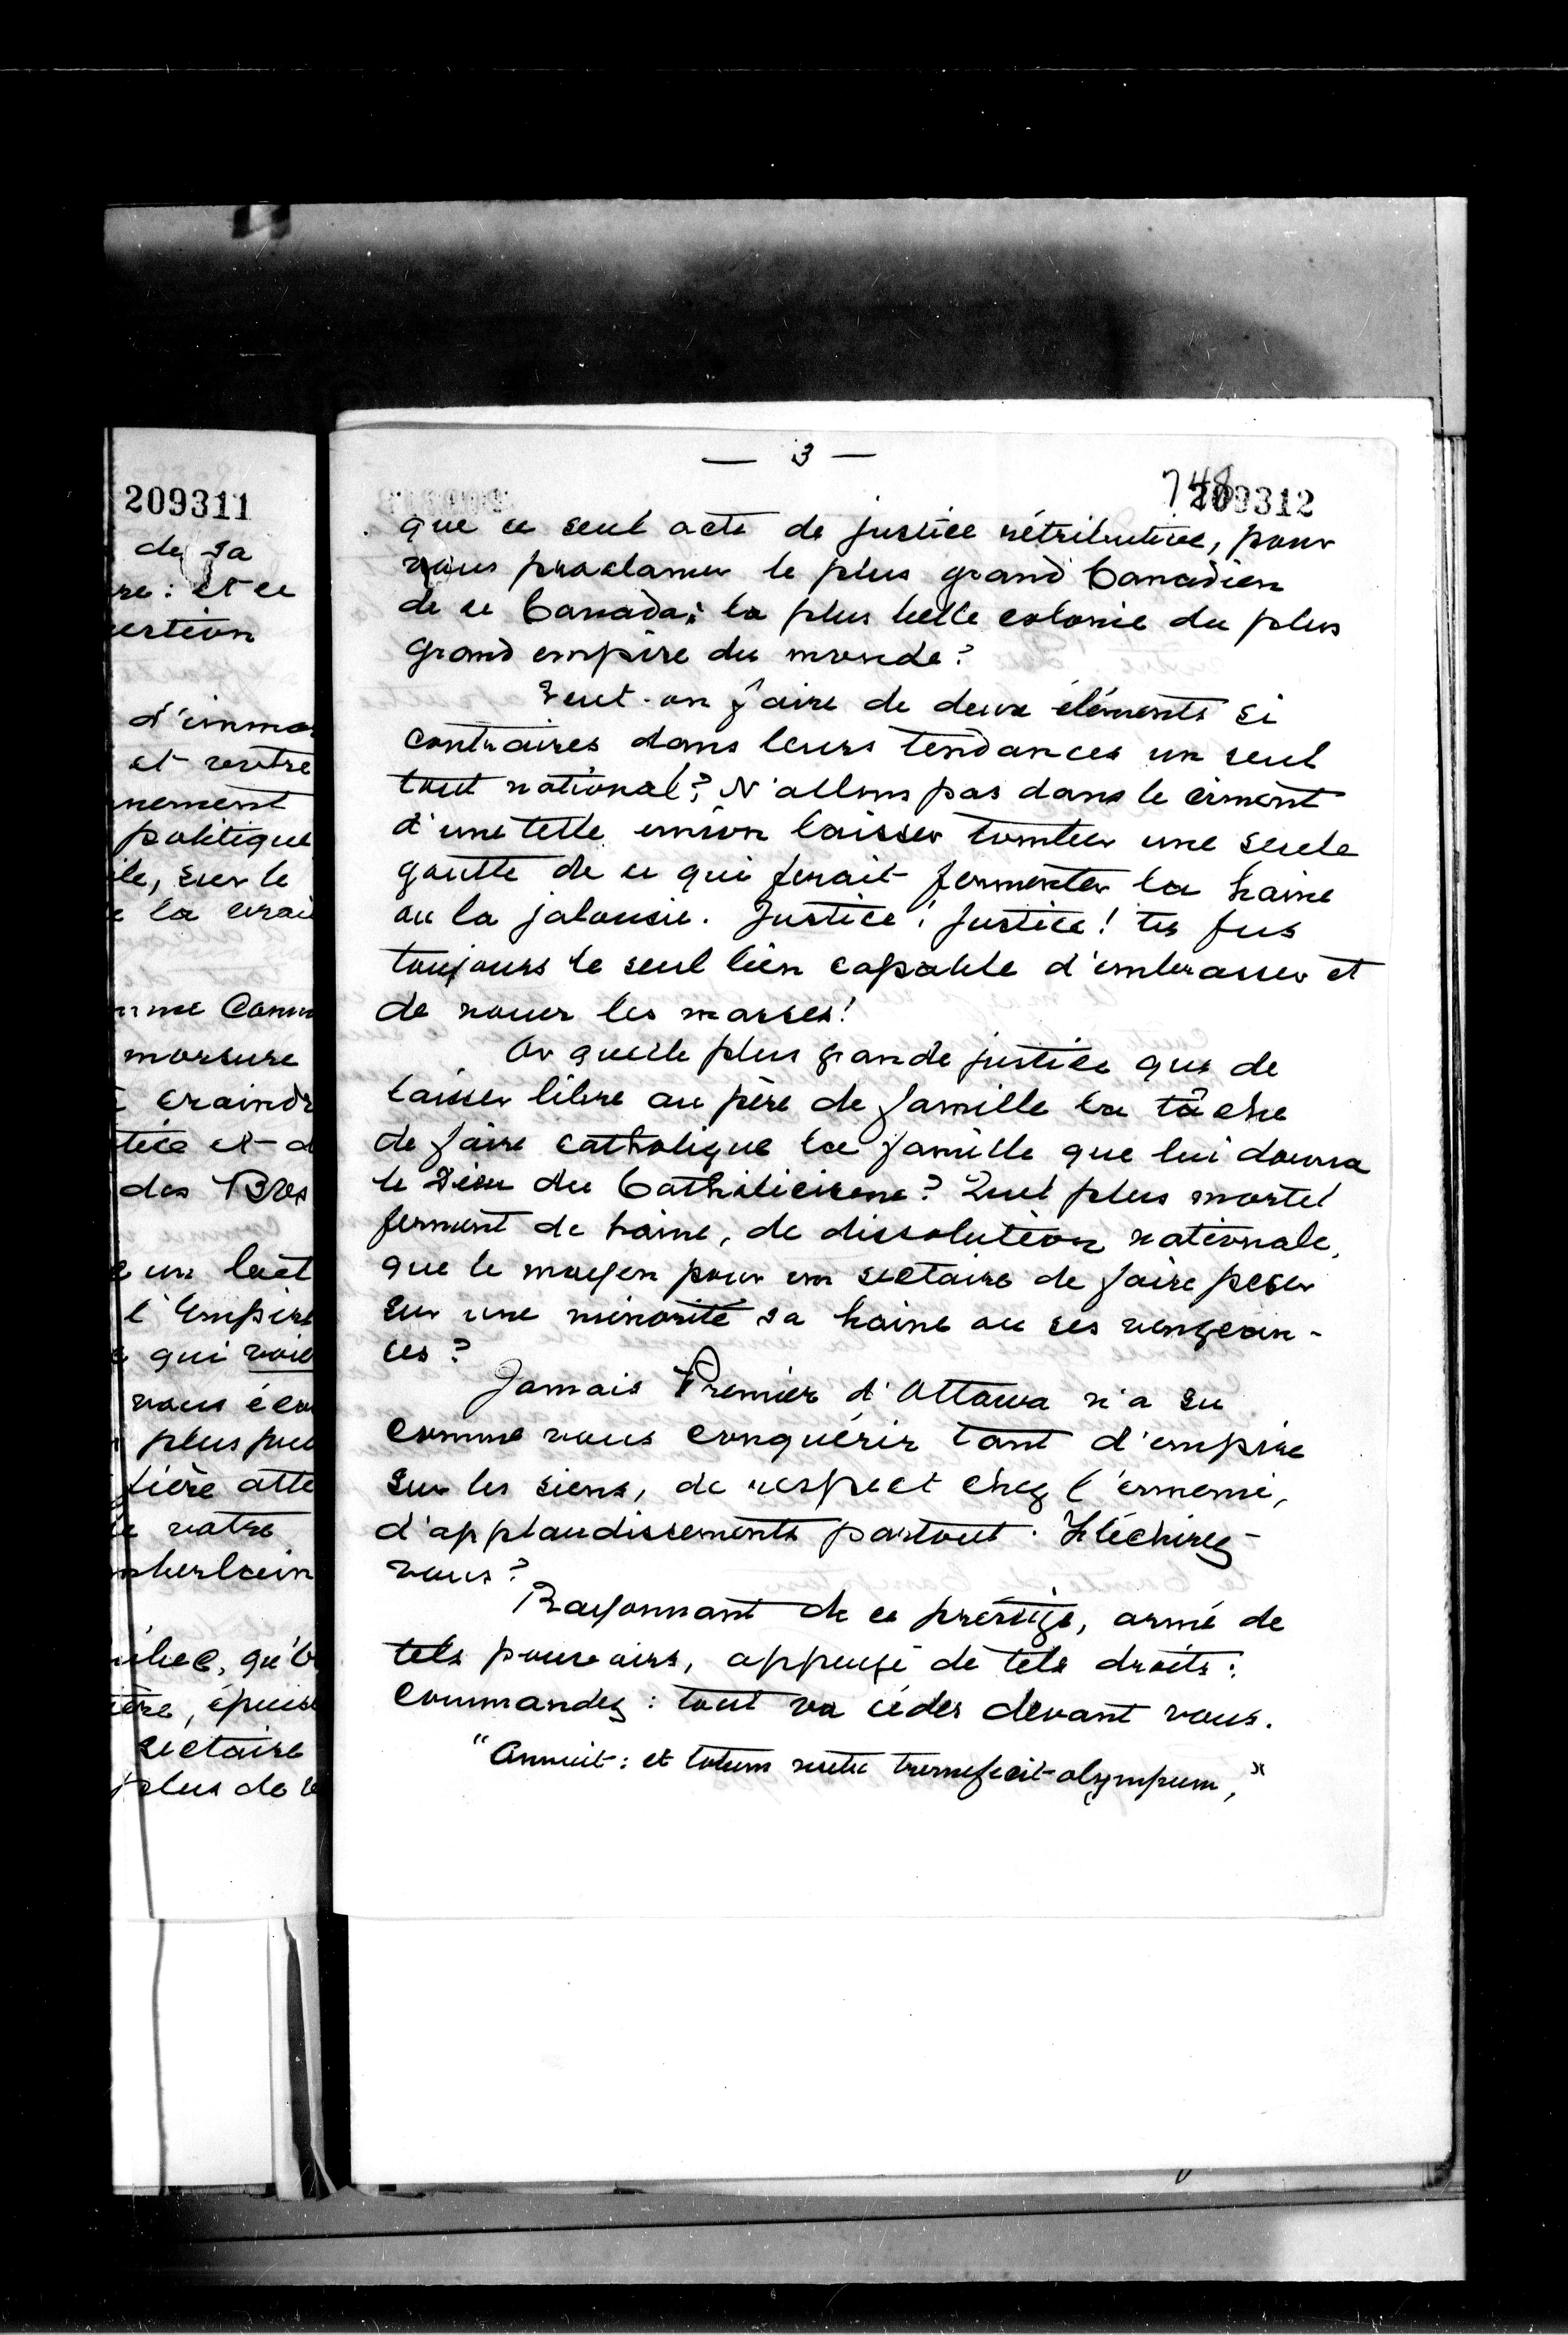 209311
de sa
re: et ce
estion
d'immo
et votre
nement
politique
ile, sur le
la vrai
mme Comm
morsure
craindr
tice et d
des Bos
un
l'Empire
qui voie
vous
plus
fière atte
votre
mberlain
ébec, qu'
ère, épuis
sectaire
plus de
— 3 —
748
209312
que ce seul acte de justice rétributive, pour
vous proclamer le plus grand Canadien
de ce Canada; la plus belle colonie du plus
grand empire du monde?
Veut-on faire de deux éléments si
contraires dans leurs tendances un seul
tout national? N'allons pas dans le ciment
d'une telle union laisser tomber une seule
goutte de ce qui ferait fermenter la haine
ou la jalousie. Justice! Justice! tu fus
toujours le seul lien capable d'embrasser et
de nouer les masses!
Or quelle plus grande justice que de
laisser libre au père de famille la tâche
de faire catholique la famille que lui donna
le Dieu du Catholicisme? Quel plus mortel
ferment de haine, de dissolution nationale,
que le moyen pour un sectaire de faire peser
sur une minorité sa haine ou ses vengean-
ces?
Jamais Premier d'Ottawa n'a su
comme vous conquérir tant d'empire
sur les siens, de respect chez l'ennemi,
d'applaudissements partout. Fléchirez-
vous?
Rayonnant de ce préstige, armé de
tels pouvoirs, appuyé de tels droits:
Commandez: tout va céder devant vous.
"Annuit: et totum nutu tremefecit olympum,"